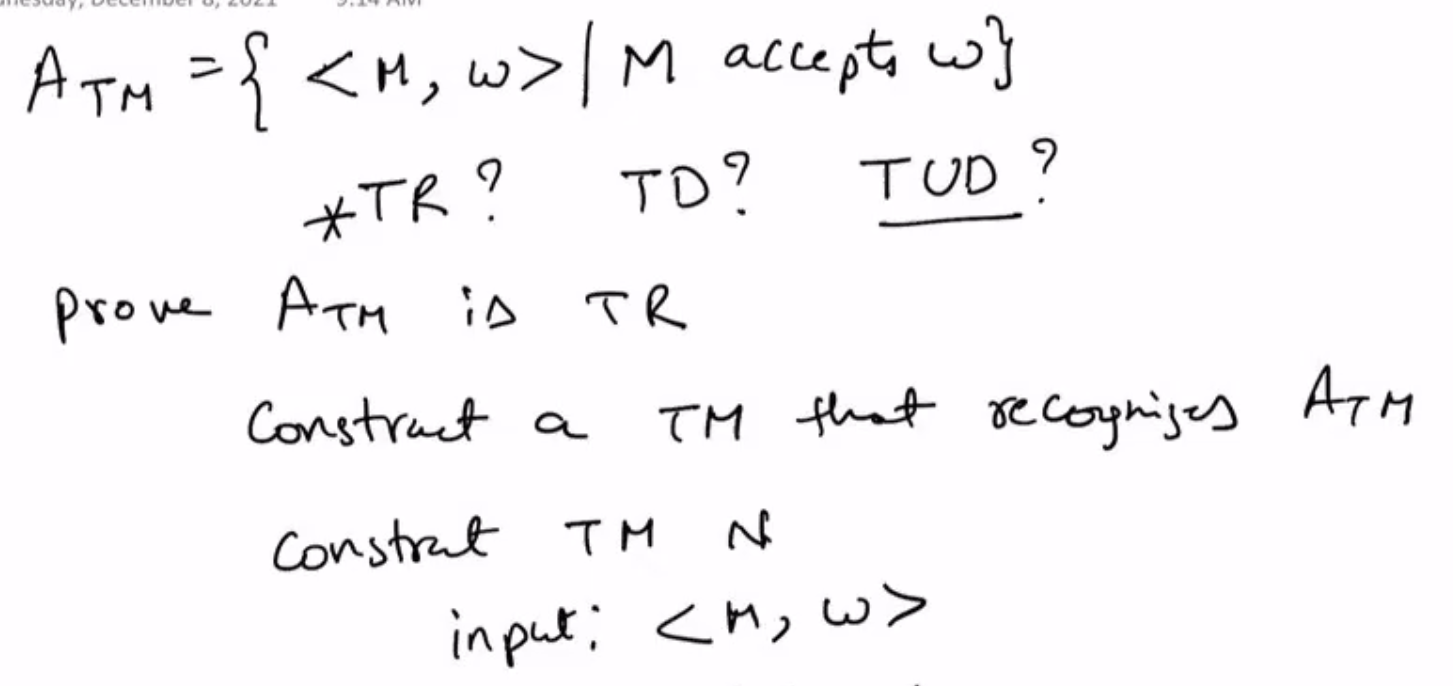 December 8, 2021 9:14 AM
A_TM = { <M, w> | M accepts w}
*TR? TD? TUD?
prove A_TM is TR
Construct a TM that recognises A_TM
Construt TM N
input: <M, w>